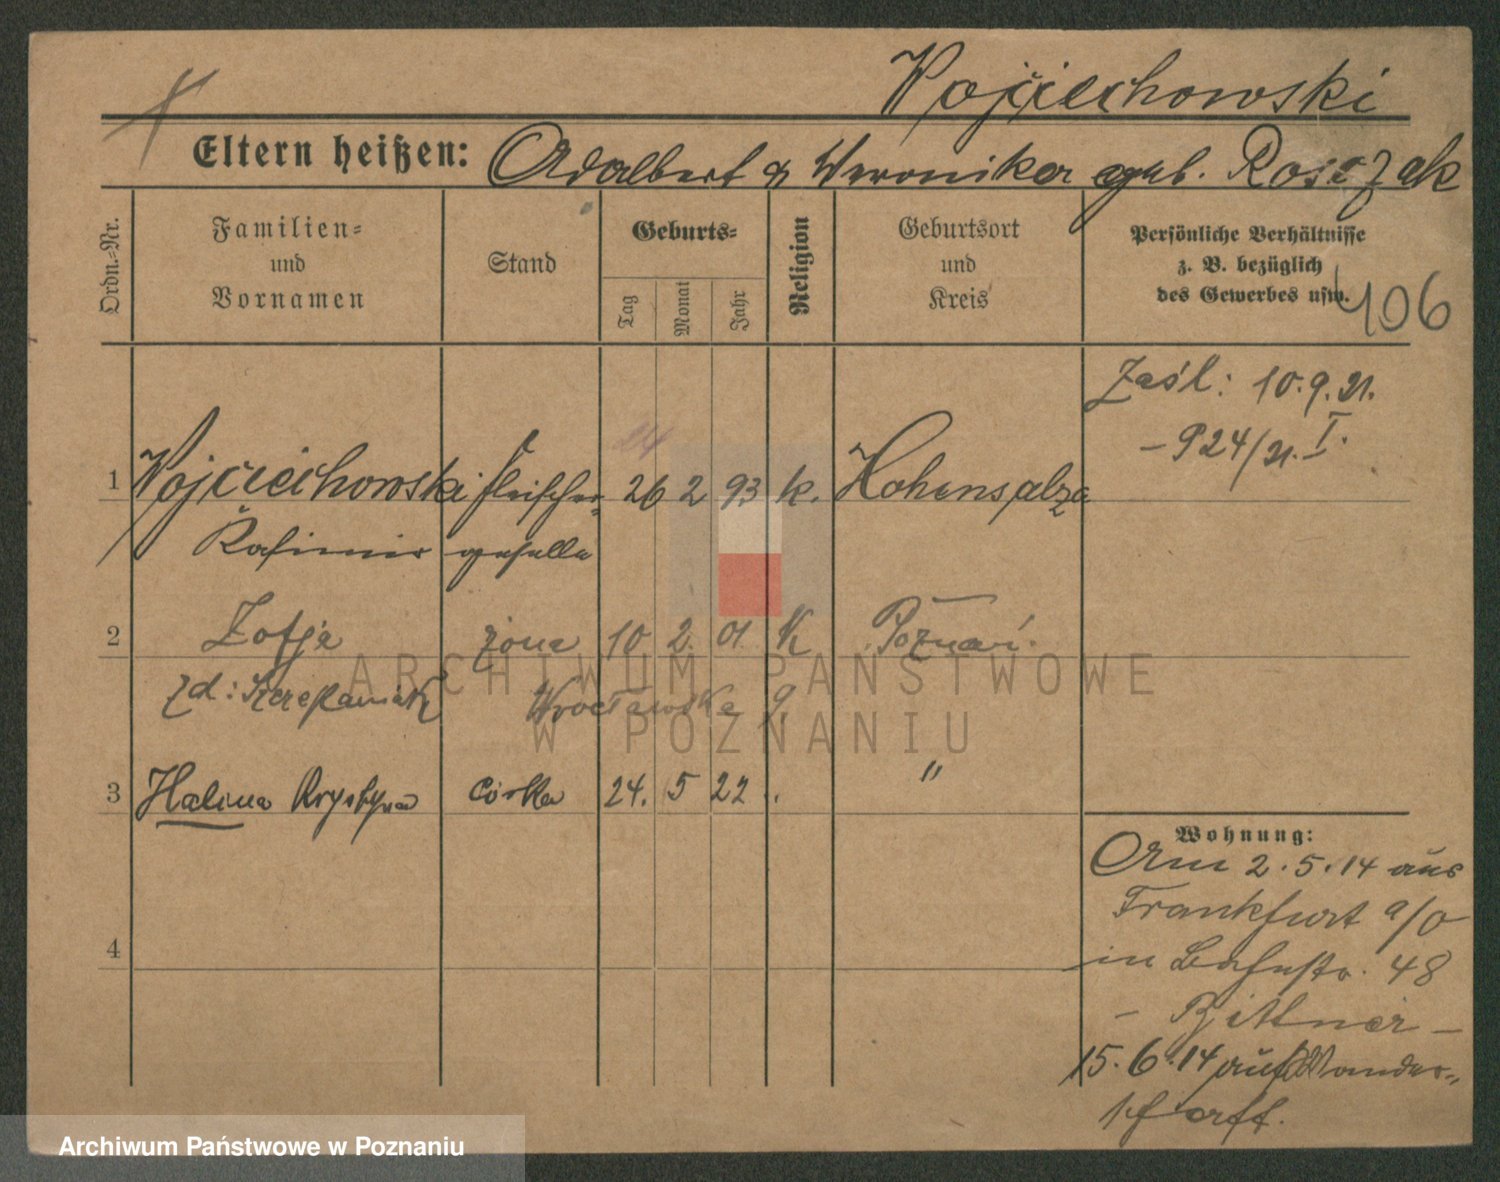 Wojciechowski
Eltern heißen: Adalbert & Weronika geb. Roszak
Ordn.-Nr.
Familien-
und
Vornamen
Stand
Geburts-
Tag
Monat
Jahr
Religion
Geburtsort
und
Kreis
Persönliche Verhältnisse
z. B. bezüglich
des Gewerbes usw.
106
Zaśl: 10.9.21.
- P24/21. I.
24
1 Wojciechowski Fleischer- 26 2 93 k. Hohensalza
Kasimir geselle
2 Zofja żona 10 2. 01. K Poznań.
zd: Szczepaniak Wrocławska 9.
3 Halina Krystyna córka 24. 5 22 "
4
Wohnung:
Am 2.5.14 aus
Frankfurt a/O
in Bahnstr. 48
- Bittner -
15.6.14 auf Wander-
schaft.
ARCHIWUM PAŃSTWOWE
W POZNANIU
Archiwum Państwowe w Poznaniu